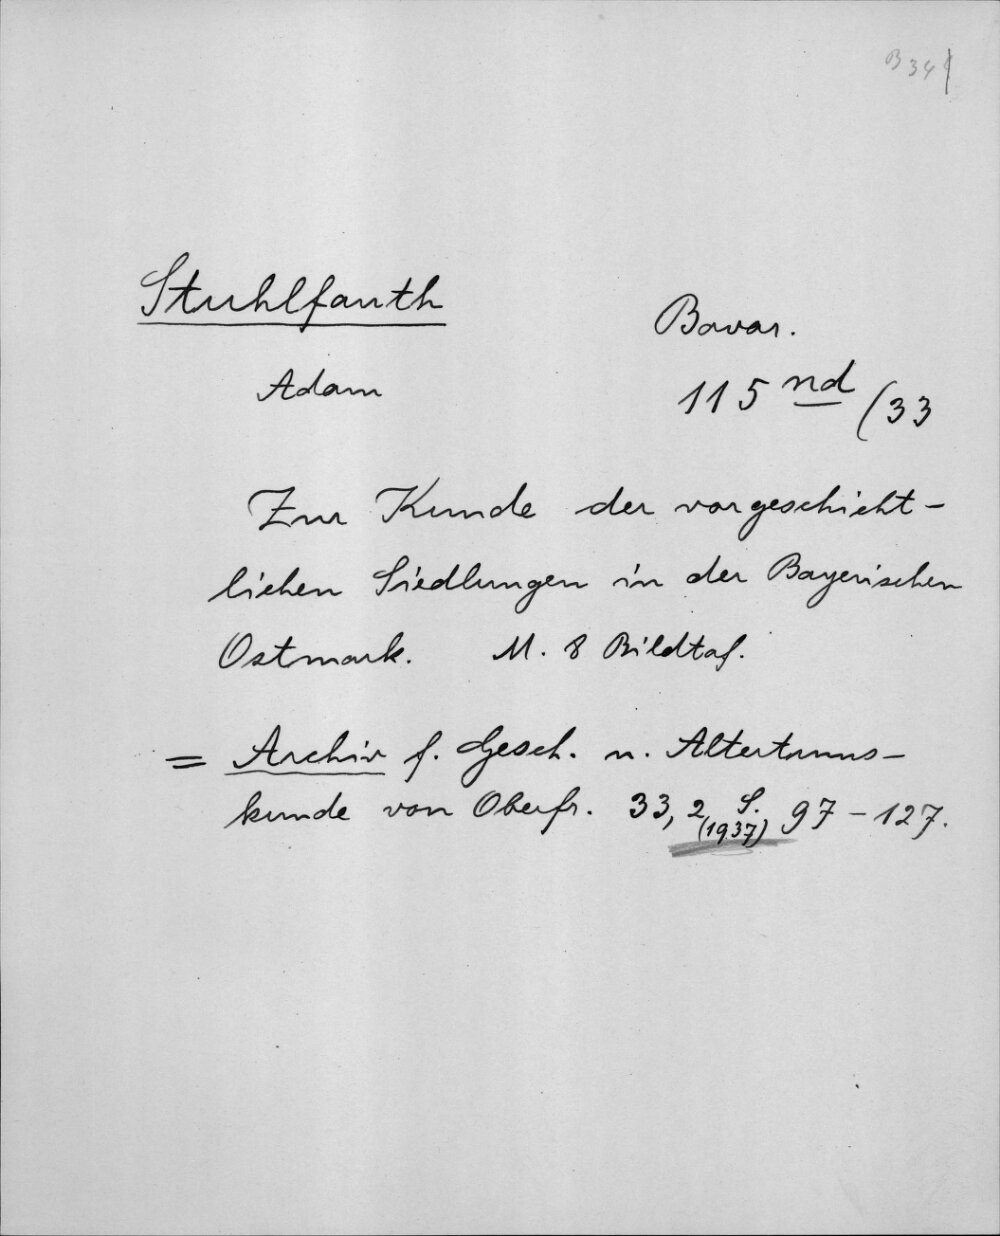 B 34
Stuhlfauth
Bavar.
Adam
115 nd (33
Zur Kunde der vorgeschicht-
lichen Siedlungen in der Bayerischen
Ostmark. M. 8 Bildtaf.
= Archiv f. Gesch. u. Altertums-
kunde von Oberfr. 33, 2 S. 97-127.
(1937)